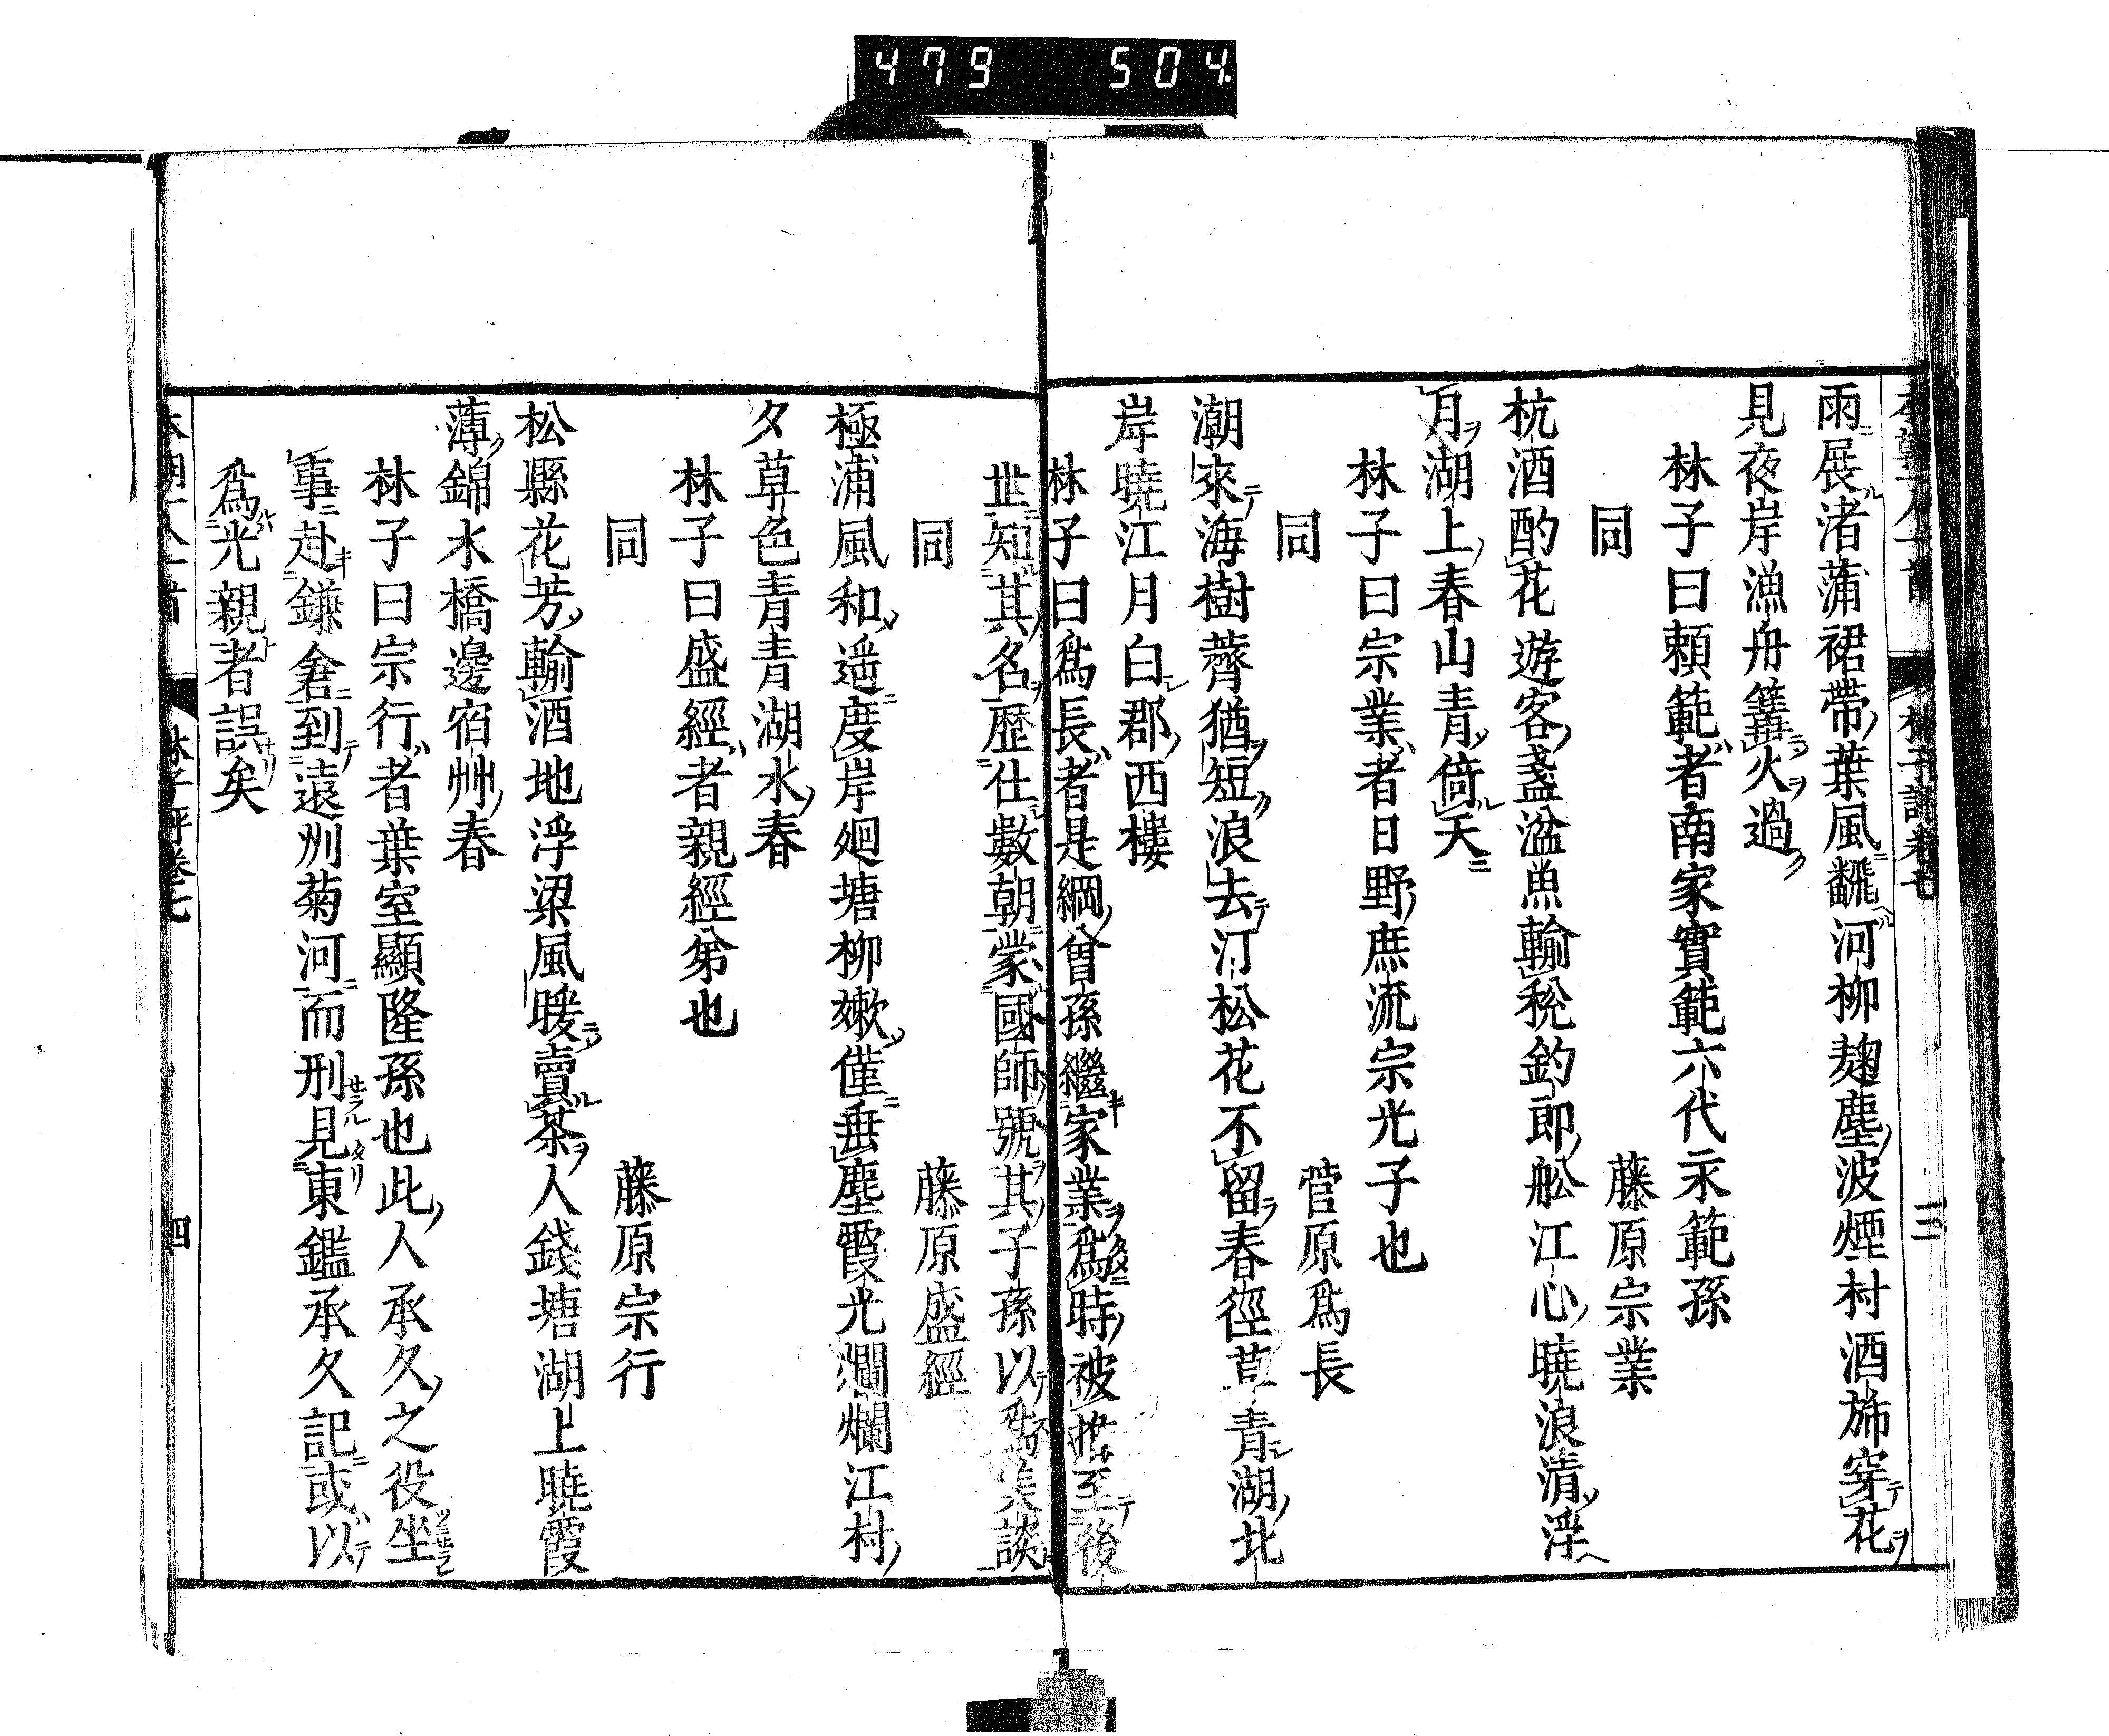 479 504
本朝一人一首 林子評卷七 三
雨展渚蒲裙帶葉風飜河柳麹塵波煙村酒斾穿花
見夜岸漁舟篝火過
林子曰頼範者南家實範六代永範孫
同 藤原宗業
杭酒酌花遊客盞湓魚輸稅釣郎舩江心曉浪清浮
月湖上春山青倚天
林子曰宗業者日野庶流宗光子也
同 菅原爲長
潮來海樹薺猶短浪去汀松花不留春徑草青湖北
岸曉江月白郡西樓
林子曰爲長者是綱曾孫繼家業爲時被推至後
世知其名歴仕數朝蒙國師號其子孫以爲美談
同 藤原盛經
極浦風和遥度岸廻塘柳嫩僅垂塵霞光爛爛江村
夕草色青青湖水春
林子曰盛經者親經弟也
同 藤原宗行
松縣花芳輸酒地浮梁風暖賣茶人錢塘湖上曉霞
薄錦水橋邊宿艸春
林子曰宗行者葉室顯隆孫也此人承久之役坐
事赴鎌倉到遠州菊河而刑見東鑑承久記或以
爲光親者誤矣
本朝一人一首 林子評卷七 四